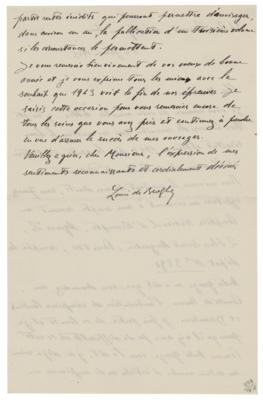 parties restes inédits qui pourront permettre d'envisager,
dans un an ou, la publication d'un troisième volume
si les circonstances le permettent.
Je vous remercie bien vivement de vos vœux de bonne
année et je vous exprime tous les miens avec le
souhait que 1943 voit la fin de nos épreuves. Je
saisis cette occasion pour vous remercier encore de
tous les soins que vous avez pris et continuez à prendre
en vue d'assurer le succès de mes ouvrages.
Veuillez agréer, cher Monsieur, l'expression de mes
sentiments reconnaissants et cordialement dévoués
Louis de Broglie